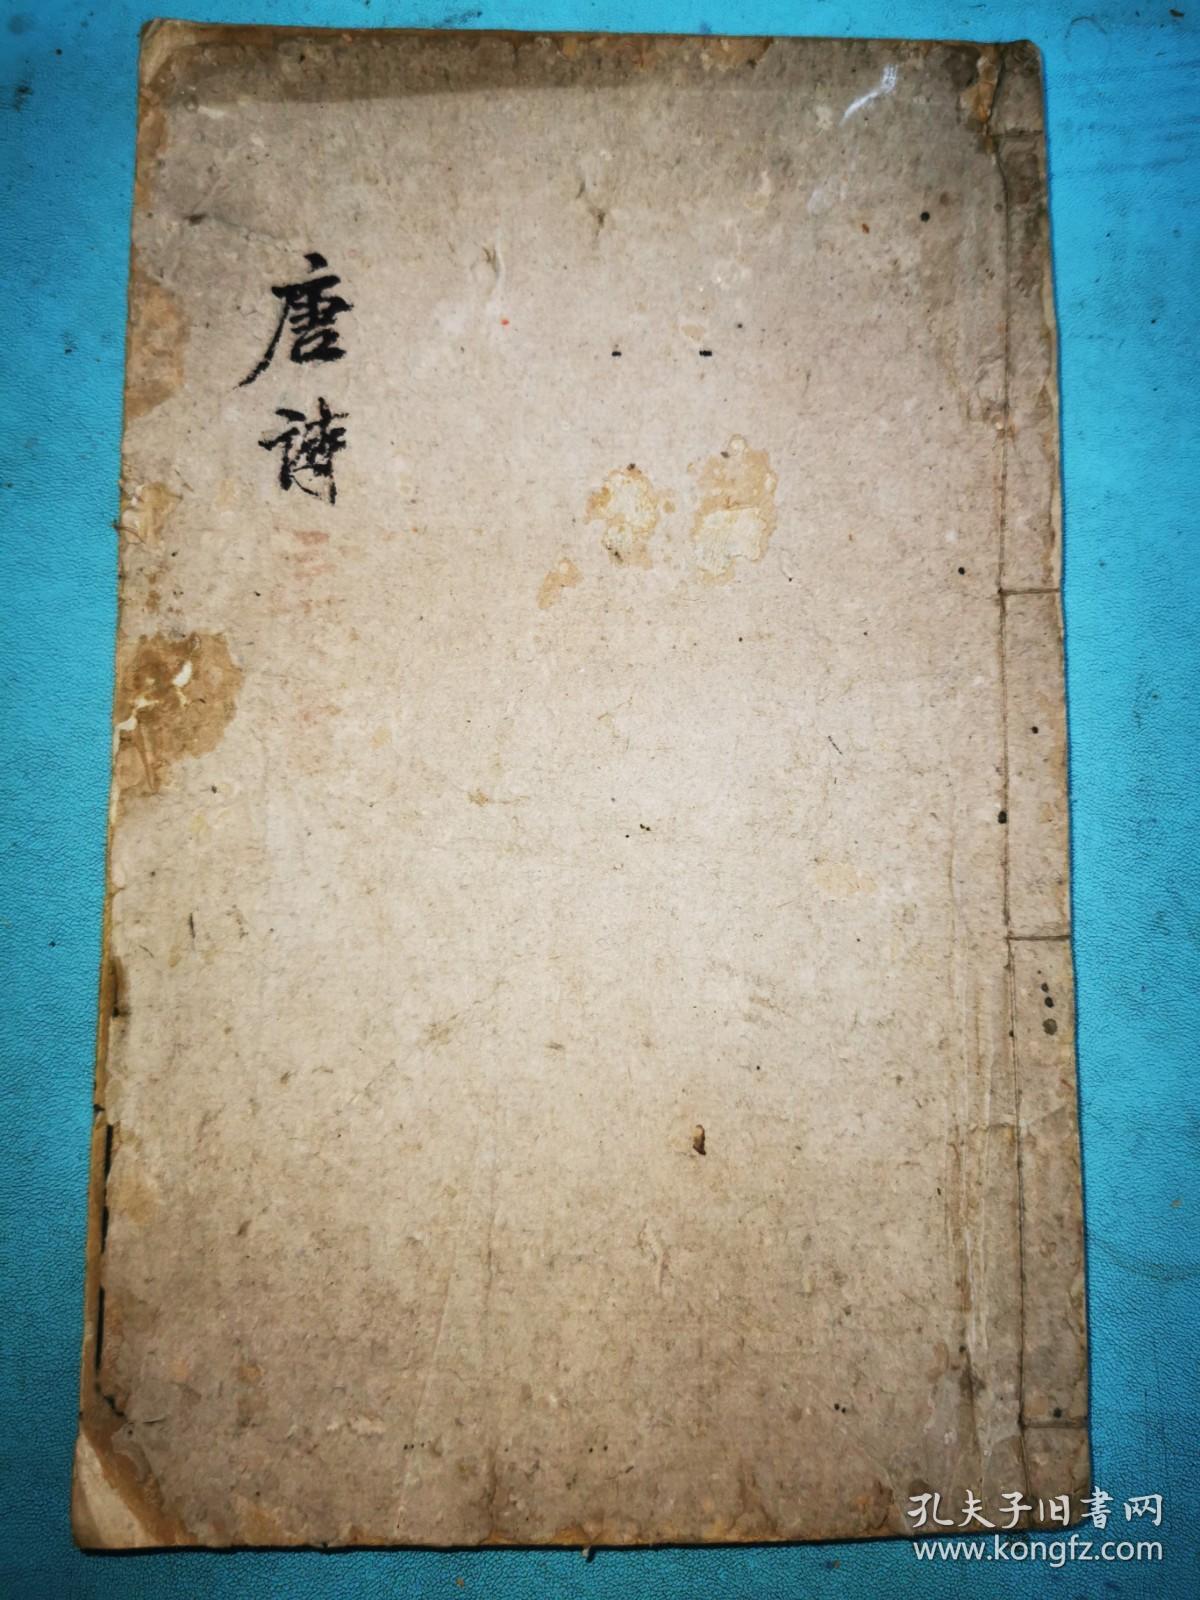 唐詩
孔夫子旧書网
www.kongfz.com